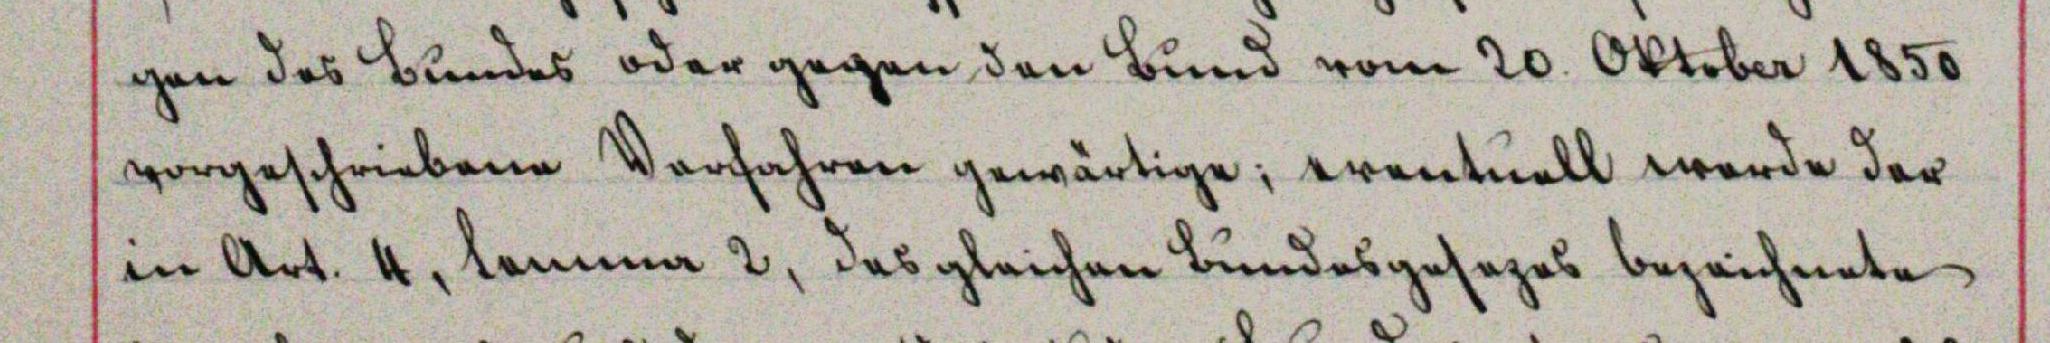 gen des Bundes oder gegen den Bund vom 20. Oktober 1850
vorgeschriebene Verfahren gewärtige; eventuell werde der
in Art. 4, lemma 2, des gleichen Bundesgesezes bezeichnete